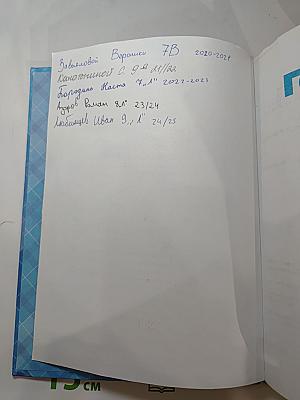 Заваловой Вероники 7В 2020-2021
Капотниной С. 9"А" 21/22
Бородина Настя 7 „1" 2022-2023
Роман 8Л" 23/24
Любимцев Иван 9 „1" 24/25
15 см